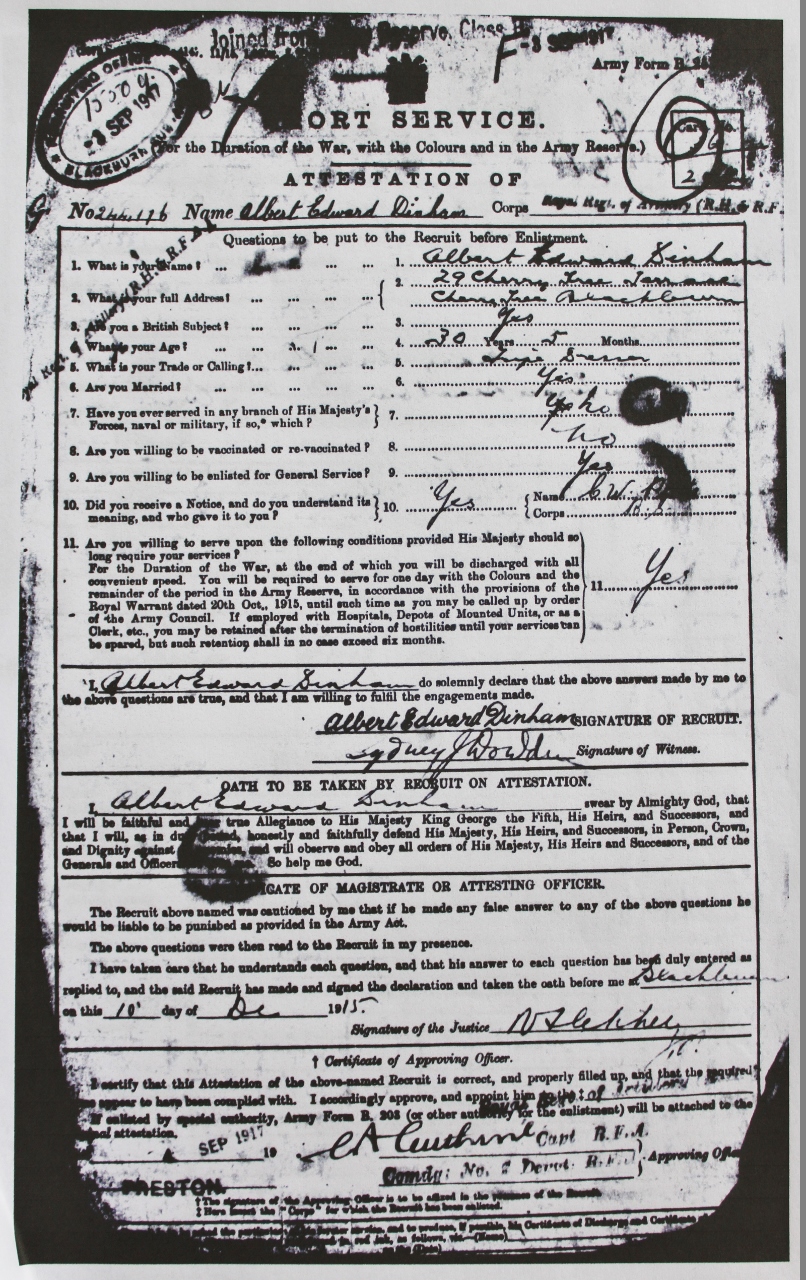 Joined from Reserve, Class
-3 SEP 1917
Army Form B.
RECRUITING OFFICE
15509
-3 SEP 1917
BLACKBURN
ORT SERVICE.
(For the Duration of the War, with the Colours and in the Army Reserve.)
ATTESTATION OF
No 244176 Name Albert Edward Dinham Corps Royal Regt. of Artillery (R.H. & R.F.
Questions to be put to the Recruit before Enlistment.
1. What is your Name? ... 1. Albert Edward Dinham
2. What is your full Address? ... ... ... ... 2. 29 Cherry Tree Terrace
Cherry Tree Blackburn
3. Are you a British Subject? ... ... ... ... 3. Yes
4. What is your Age? ... ... ... 4. 30 Years 5 Months.
5. What is your Trade or Calling?... ... ... ... 5. Tripe Dresser
6. Are you Married? ... ... ... ... ... 6. Yes.
7. Have you ever served in any branch of His Majesty's
Forces, naval or military, if so,* which? 7. no
8. Are you willing to be vaccinated or re-vaccinated? 8. no
9. Are you willing to be enlisted for General Service? 9. Yes
10. Did you receive a Notice, and do you understand its
meaning, and who gave it to you? 10. Yes Name C.W.
Corps
11. Are you willing to serve upon the following conditions provided His Majesty should so
long require your services?
For the Duration of the War, at the end of which you will be discharged with all
convenient speed. You will be required to serve for one day with the Colours and the
remainder of the period in the Army Reserve, in accordance with the provisions of the
Royal Warrant dated 20th Oct., 1915, until such time as you may be called up by order
of the Army Council. If employed with Hospitals, Depots of Mounted Units, or as a
Clerk, etc., you may be retained after the termination of hostilities until your services can
be spared, but such retention shall in no case exceed six months.
11. Yes
I, Albert Edward Dinham do solemnly declare that the above answers made by me to
the above questions are true, and that I am willing to fulfil the engagements made.
Albert Edward Dinham SIGNATURE OF RECRUIT.
Sydney J Dowden Signature of Witness.
OATH TO BE TAKEN BY RECRUIT ON ATTESTATION.
I, Albert Edward Dinham swear by Almighty God, that
I will be faithful and true Allegiance to His Majesty King George the Fifth, His Heirs, and Successors, and
that I will, as in honestly and faithfully defend His Majesty, His Heirs, and Successors, in Person, Crown,
and Dignity against and will observe and obey all orders of His Majesty, His Heirs and Successors, and of the
Generals and Officers So help me God.
ICATE OF MAGISTRATE OR ATTESTING OFFICER.
The Recruit above named was cautioned by me that if he made any false answer to any of the above questions he
would be liable to be punished as provided in the Army Act.
The above questions were then read to the Recruit in my presence.
I have taken care that he understands each question, and that his answer to each question has been duly entered as
replied to, and the said Recruit has made and signed the declaration and taken the oath before me at Blackburn
on this 10 day of De 1915.
Signature of the Justice
† Certificate of Approving Officer.
I certify that this Attestation of the above-named Recruit is correct, and properly filled up, and that the required
appear to have been complied with. I accordingly approve, and appoint him to the ‡
If enlisted by special authority, Army Form B. 203 (or other authority for the enlistment) will be attached to the
attestation.
SEP 1917 19
Capt R.F.A.
Comdg: No. Depot R.F. Approving Officer
PRESTON
†The signature of the Approving Officer is to be affixed in the presence of the Recruit.
‡ Here insert the "Corps" for which the Recruit has been enlisted.